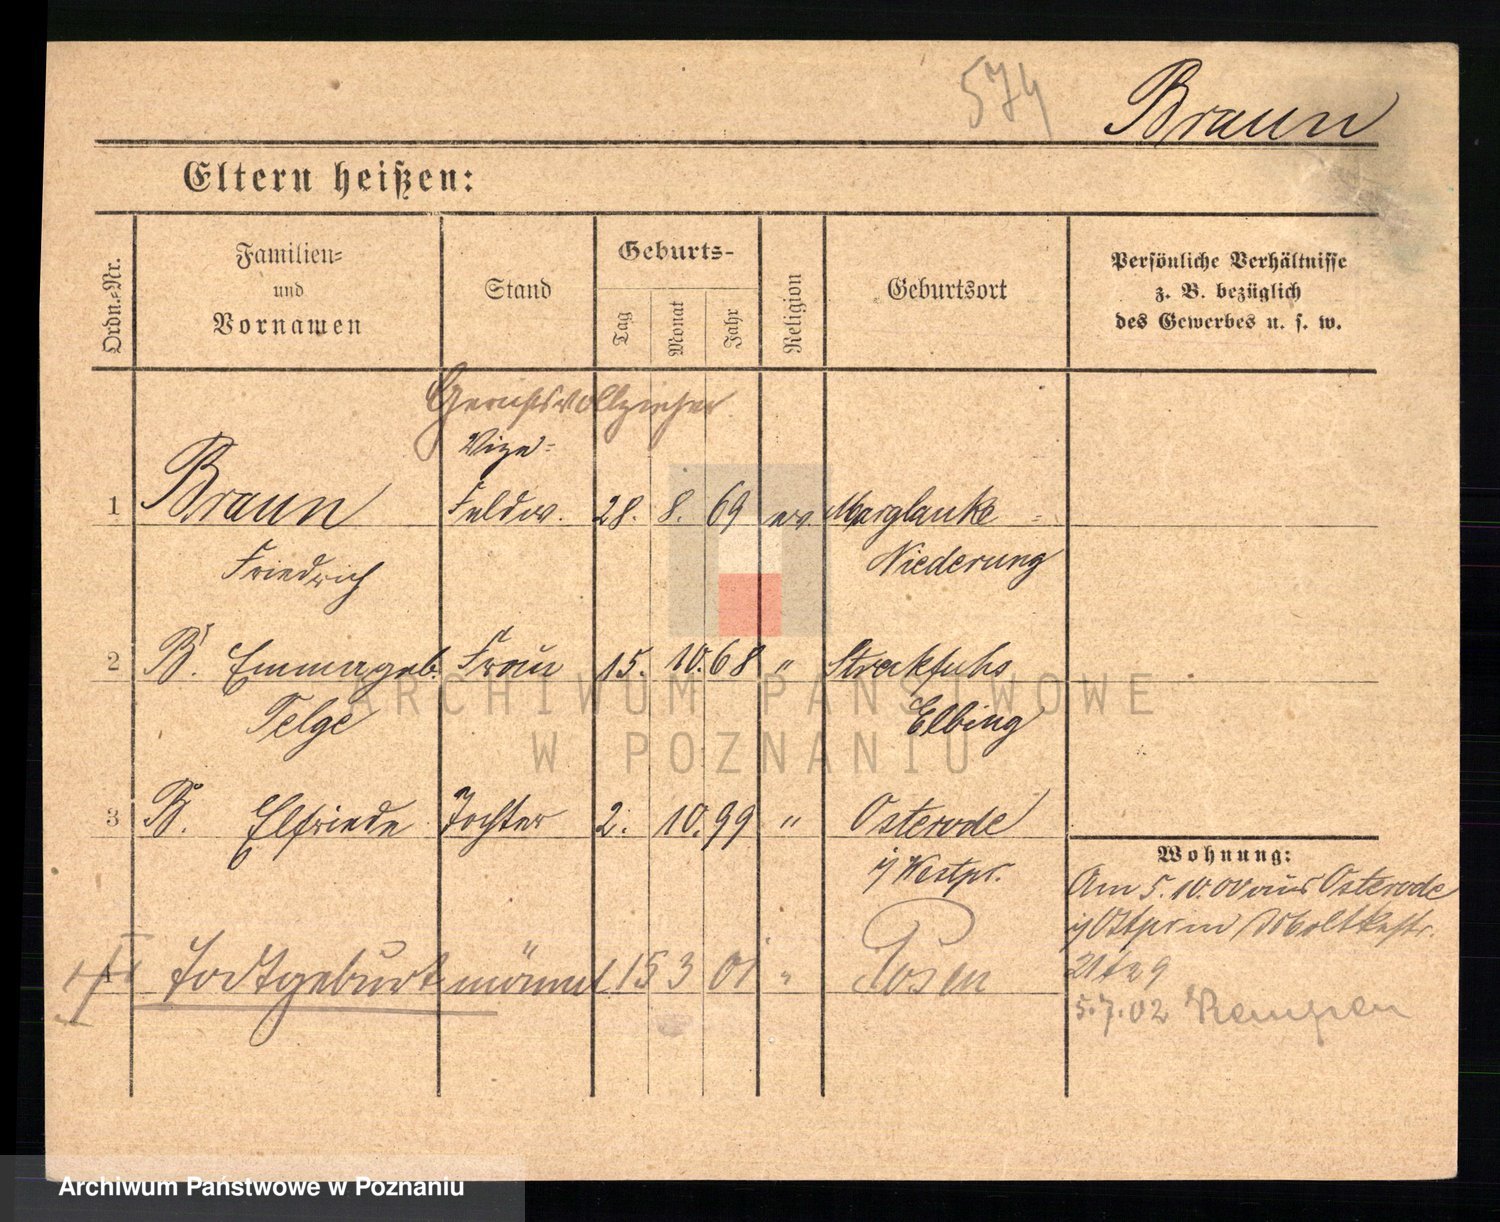 574
Braun
Eltern heißen:
Ordn.-Nr.
Familien- und Vornamen
Stand
Geburts-
Tag
Monat
Jahr
Religion
Geburtsort
Persönliche Verhältnisse
z. B. bezüglich
des Gewerbes u. s. w.
Gerichtsvollzieher
Vize-
1 Braun Feldw. 28. 8. 69 ev Marglauke-
Friedrich Niederung
2 B. Emma geb. Frau 15. 10. 68 " Streckfuhs
Telge Elbing
3 B. Elfriede Tochter 2. 10. 99 " Osterode
i/ Westpr.
Wohnung:
Am 5. 10. 00 aus Osterode
i/ Ostpr in Moltkestr.
4 Todtgeburt männl 15 3 01 " Posen
5.7.02 Kempen
ARCHIWUM PAŃSTWOWE
W POZNANIU
Archiwum Państwowe w Poznaniu